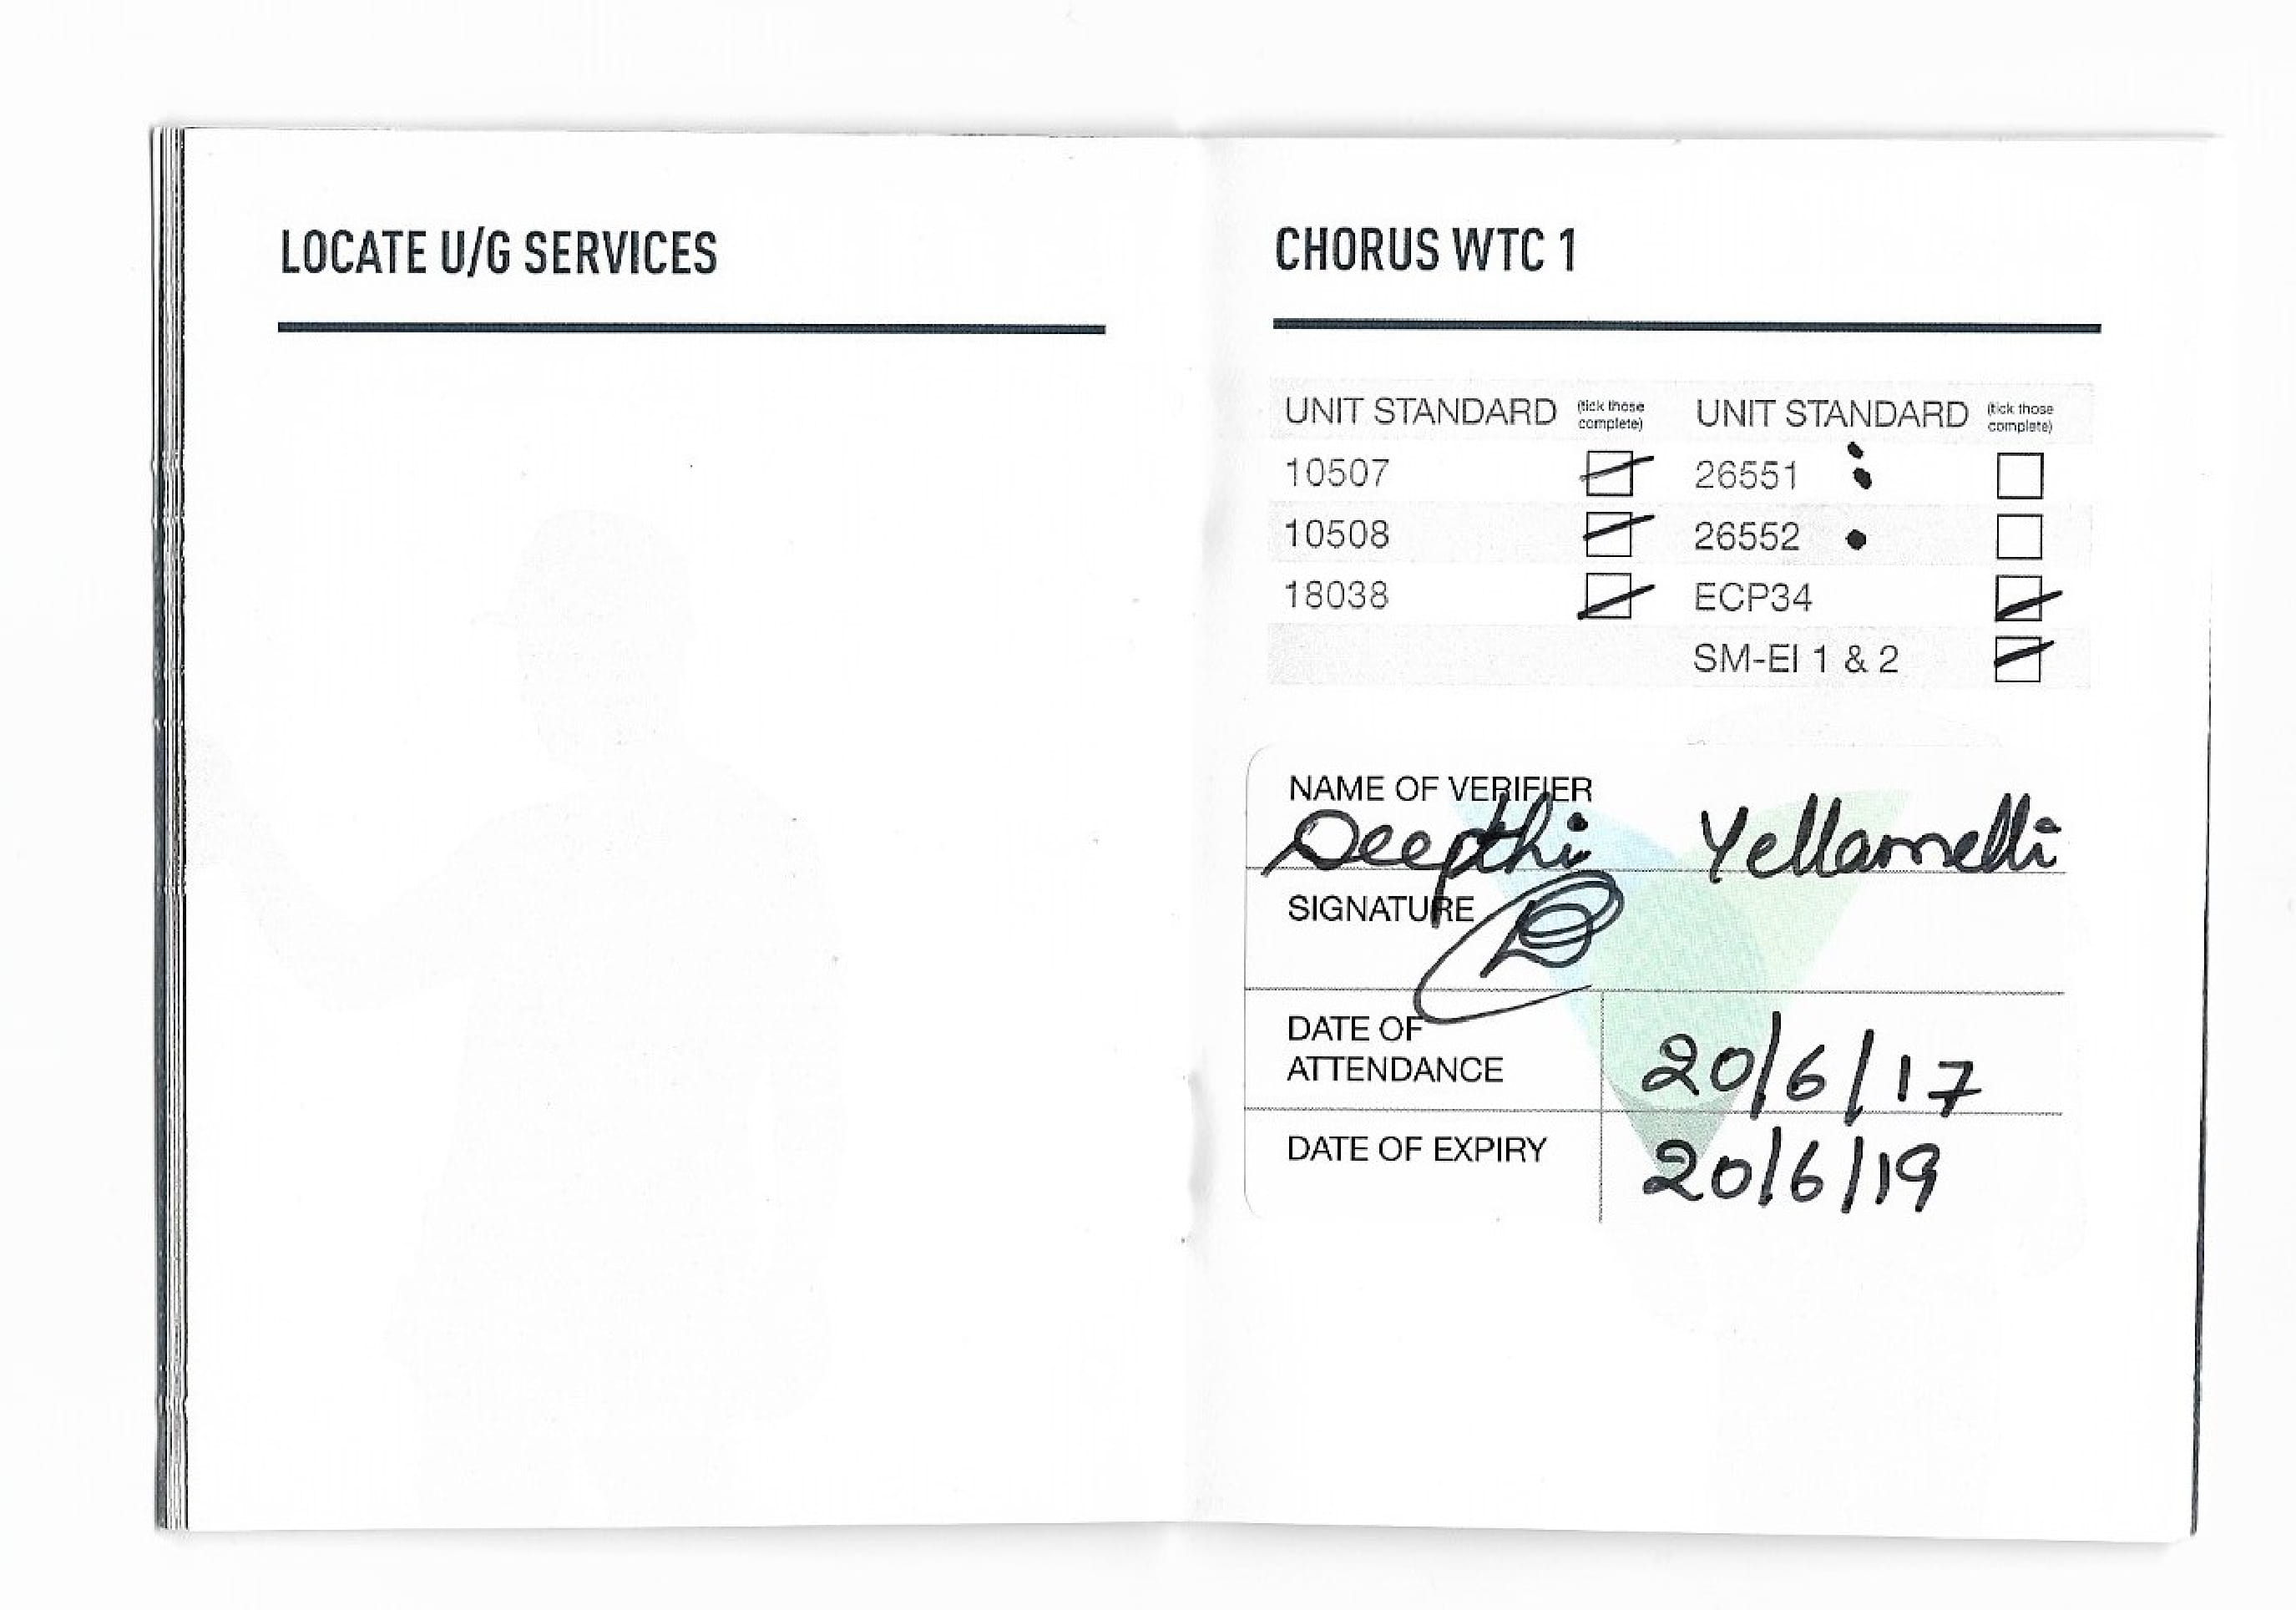 LOCATE U/G SERVICES
CHORUS WTC 1
UNIT STANDARD (tick those complete) UNIT STANDARD (tick those complete)
10507 26551
10508 26552
18038 ECP34
SM-EI 1 & 2
NAME OF VERIFIER
Deepthi Yellamelli
SIGNATURE
DATE OF
ATTENDANCE 20/6/17
DATE OF EXPIRY 20/6/19